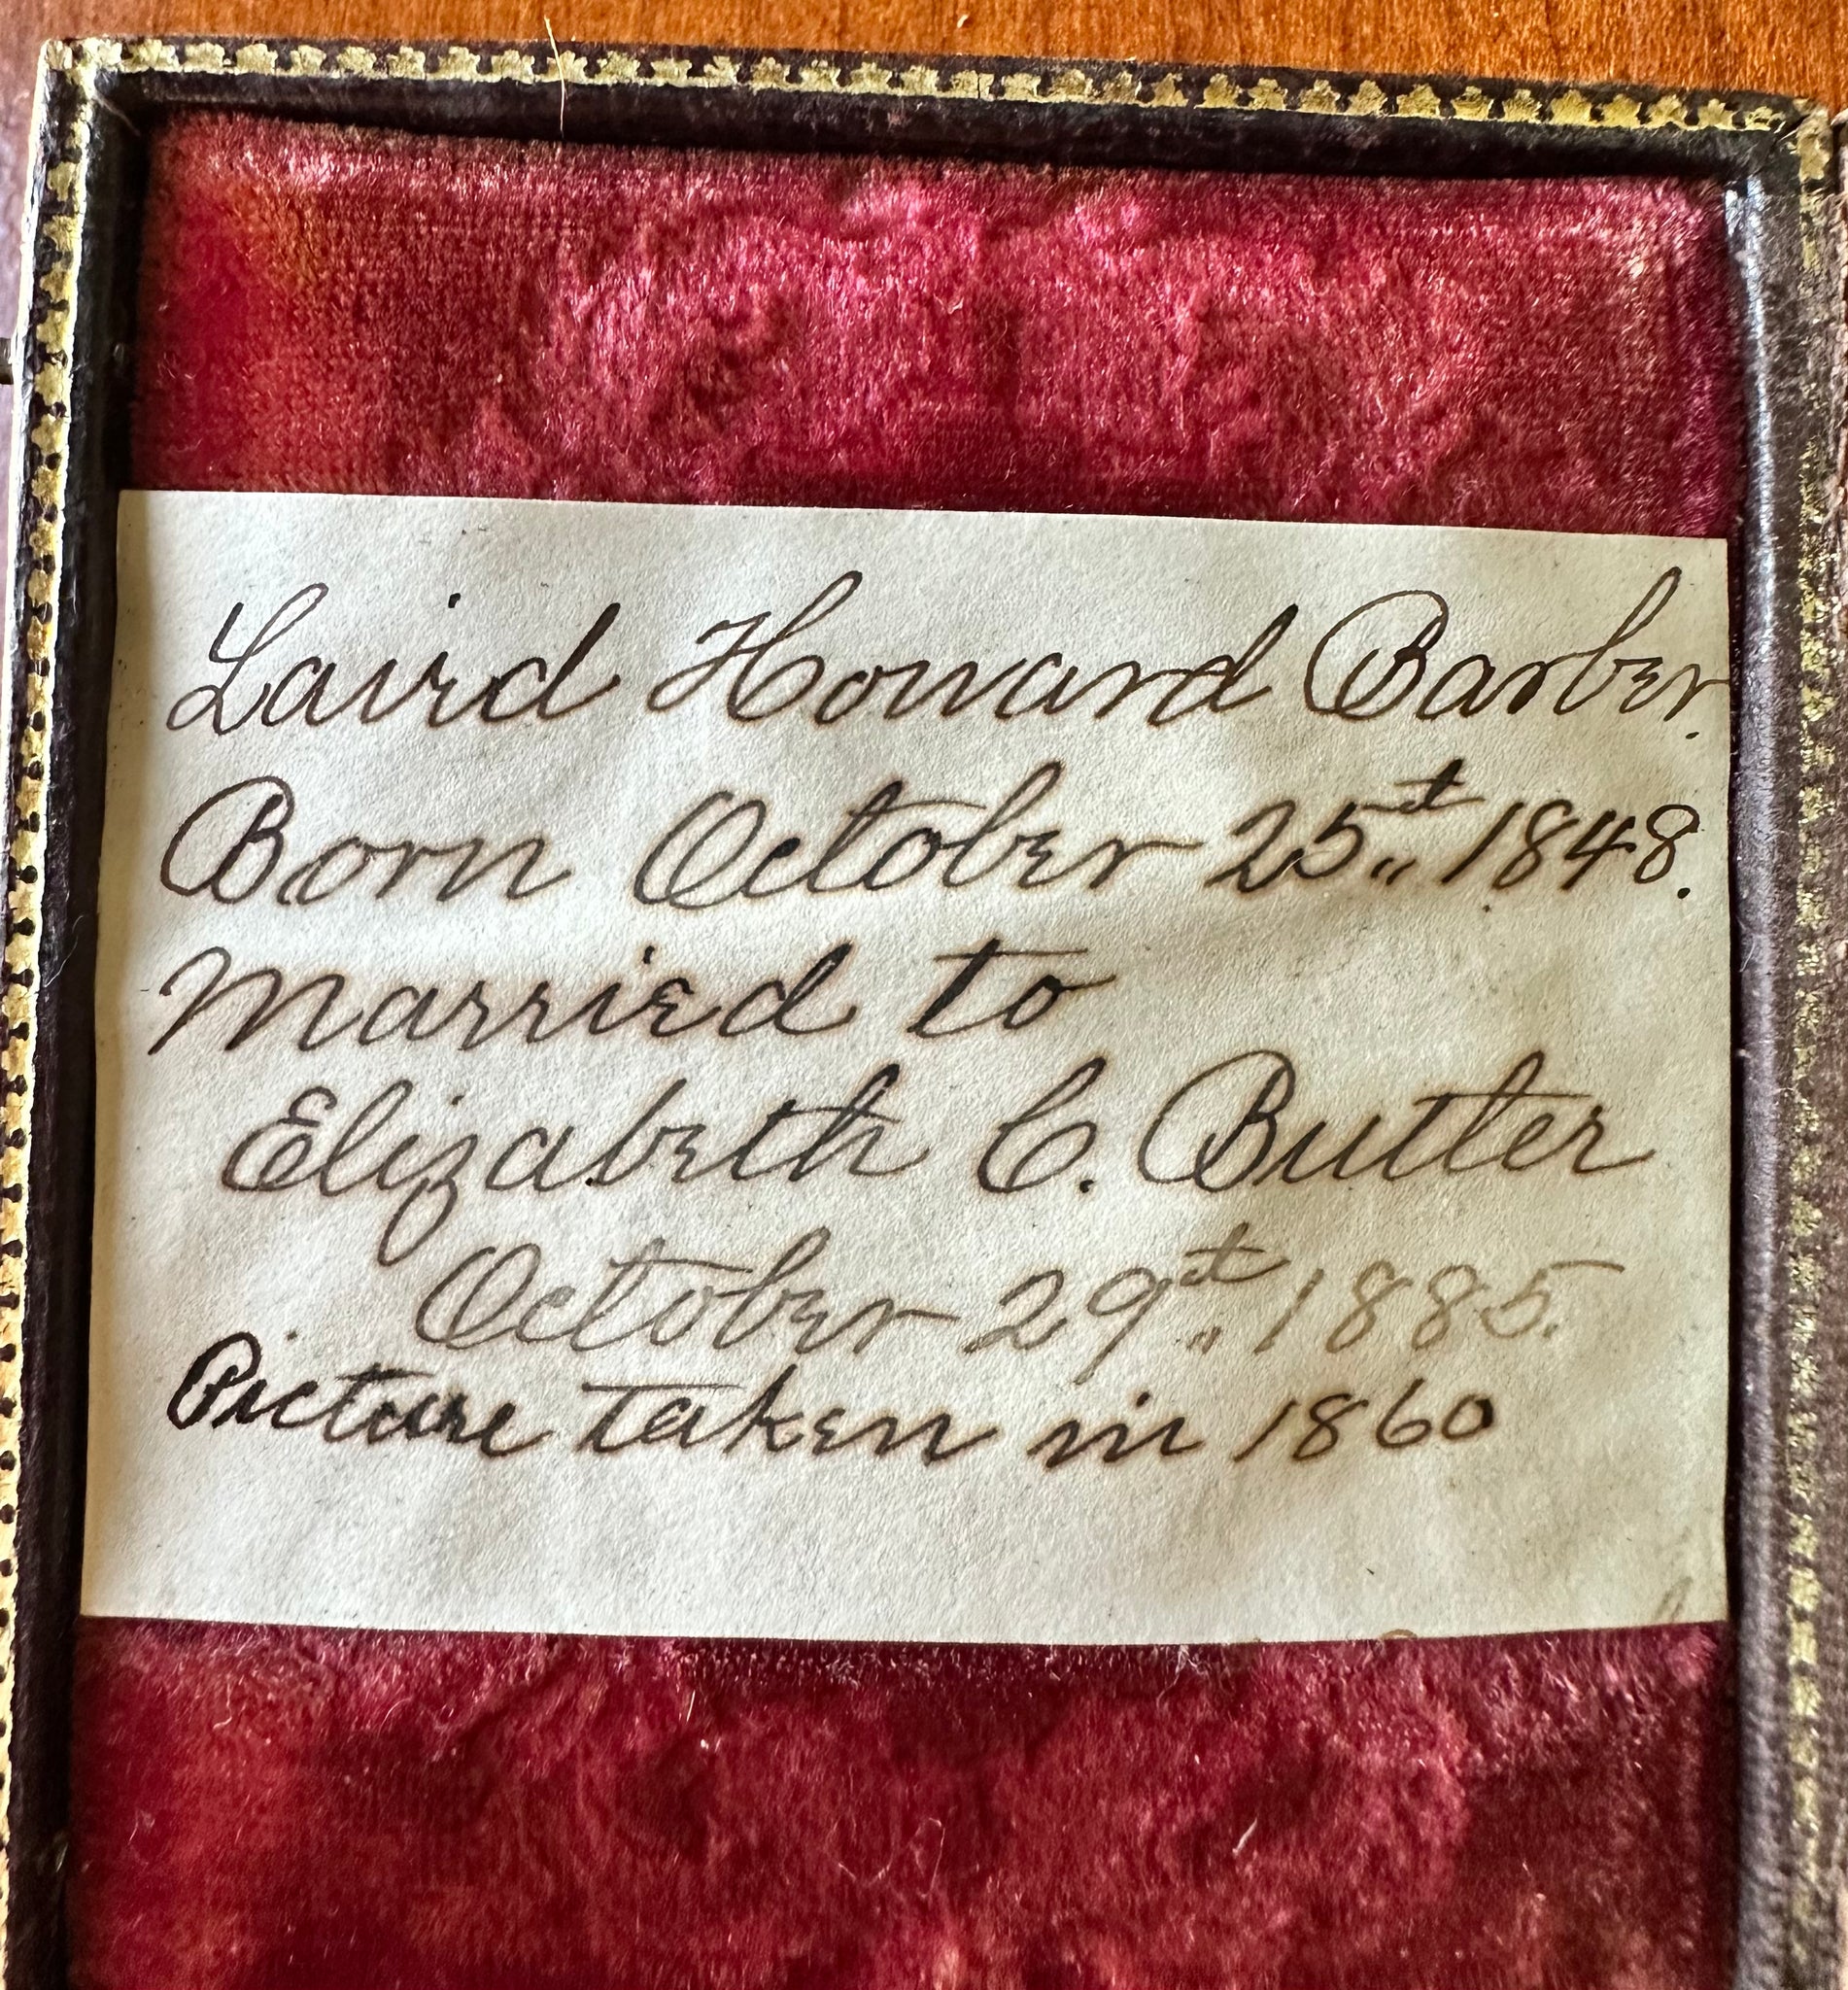 Laird Howard Barber.
Born October 25t" 1848.
Married to
Elizabeth C. Butler
October 29t" 1885.
Picture taken in 1860